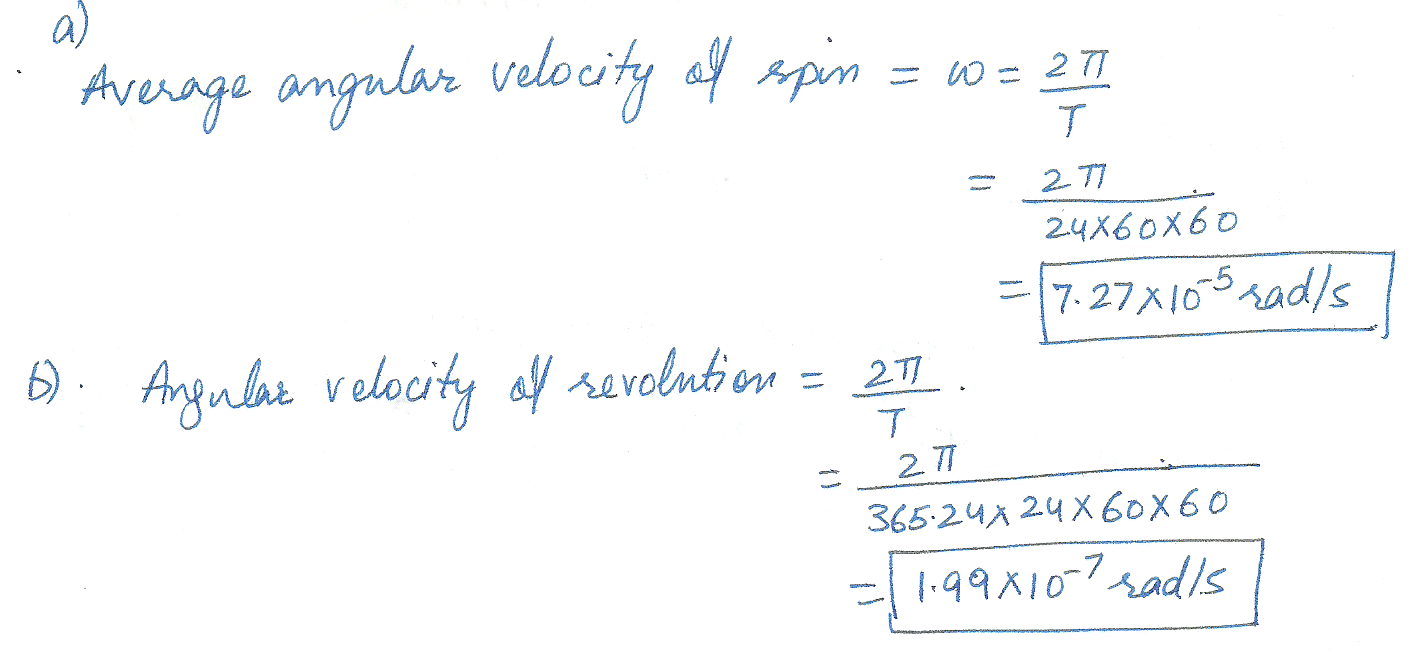 a)
Average angular velocity of spin = ω = 2π/T
= 2π/24×60×60
= 7.27×10⁻⁵ rad/s
b). Angular velocity of revolution = 2π/T.
= 2π/365.24×24×60×60
= 1.99×10⁻⁷ rad/s